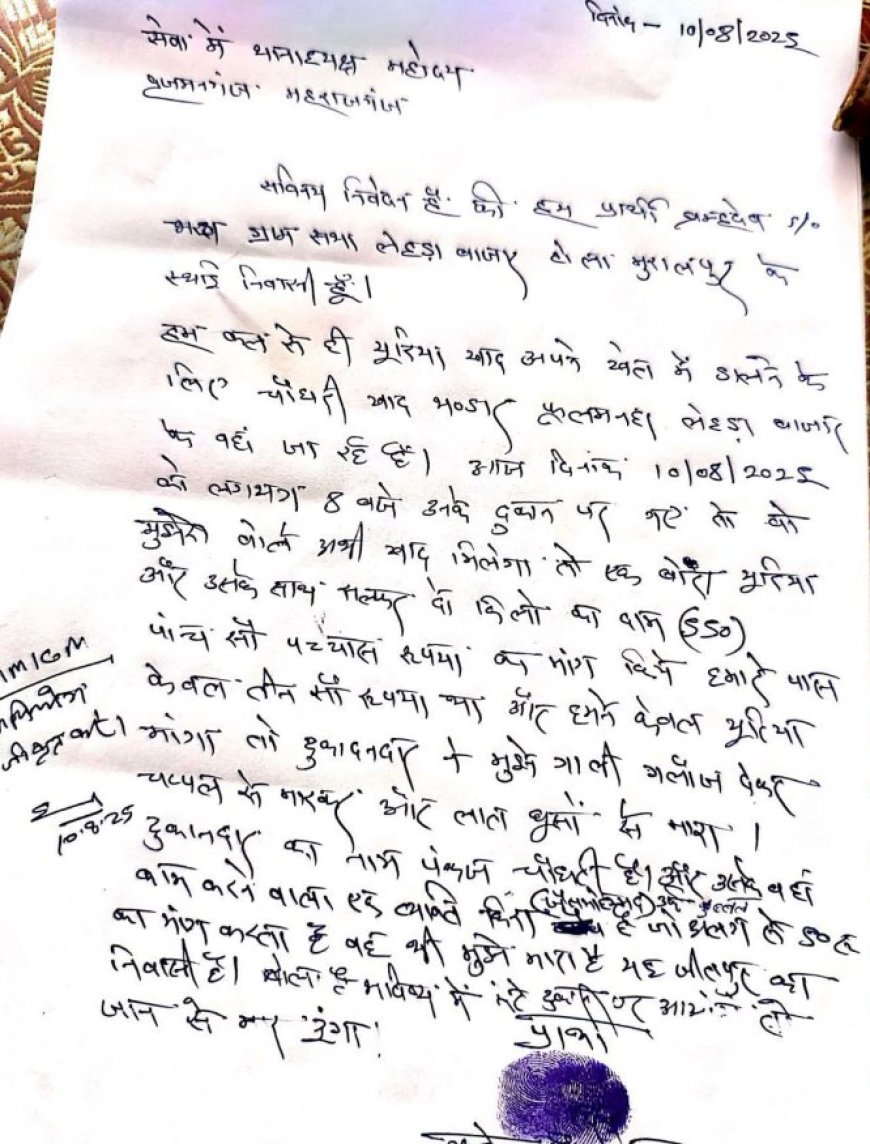 दिनांक - 10/08/2025
सेवा में थानाध्यक्ष महोदय
बृजमनगंज महराजगंज
सविनय निवेदन है की हम प्रार्थी ब्रम्हदेव S/o
ग्राम सभा लेहड़ा बाजार टोला मुरालपुर के
स्थाई निवासी हूँ।
हम कल से ही यूरिया खाद अपने खेत में डालने के
लिए चौधरी खाद भण्डार लेहड़ा बाजार
के वहां जा रहे हैं। आज दिनांक 10/08/2025
को लगभग 8 बजे उनके दुकान पर गए तो वो
मुझसे बोले अभी खाद मिलेगा तो एक बोरा यूरिया
और उसके साथ सल्फर दो किलो का दाम (550)
पांच सौ पच्चास रुपया का मांग किये हमारे पास
केवल तीन सौ रुपया था और हमने केवल यूरिया
मांगा तो दुकादनदार ने मुझे गाली गलौज देकर
चप्पल से मारकर और लात घुसों से मारा।
दुकानदार का नाम पंकज चौधरी है। और उनके वहां
काम करने वाला एक व्यक्ति है जो अलग से 50रु
का मांग करता है वह भी मुझे मारा है यह जीतपुर का
निवासी है। बोला है भविष्य में मेरे दुकान पर आयोगे तो
जान से मार दूंगा।
प्रार्थी
10.8.25